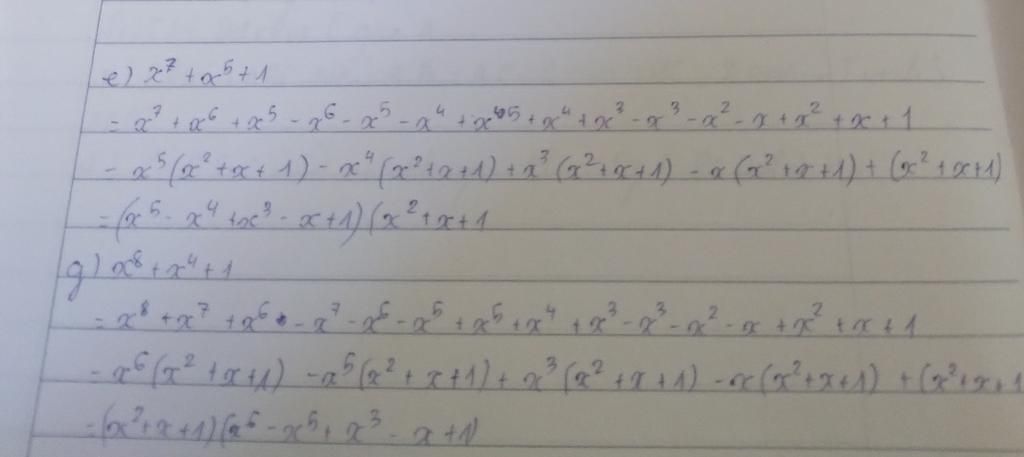 e) x⁷ + x⁵ + 1
= x⁷ + x⁶ + x⁵ - x⁶ - x⁵ - x⁴ + x⁵ + x⁴ + x³ - x³ - x² - x + x² + x + 1
= x⁵(x² + x + 1) - x⁴(x² + x + 1) + x³(x² + x + 1) - x(x² + x + 1) + (x² + x + 1)
= (x⁵ - x⁴ + x³ - x + 1)(x² + x + 1
g) x⁸ + x⁴ + 1
= x⁸ + x⁷ + x⁶ - x⁷ - x⁶ - x⁵ + x⁵ + x⁴ + x³ - x³ - x² - x + x² + x + 1
= x⁶(x² + x + 1) - x⁵(x² + x + 1) + x³(x² + x + 1) - x(x² + x + 1) + (x² + x + 1
= (x² + x + 1)(x⁶ - x⁵ + x³ - x + 1)